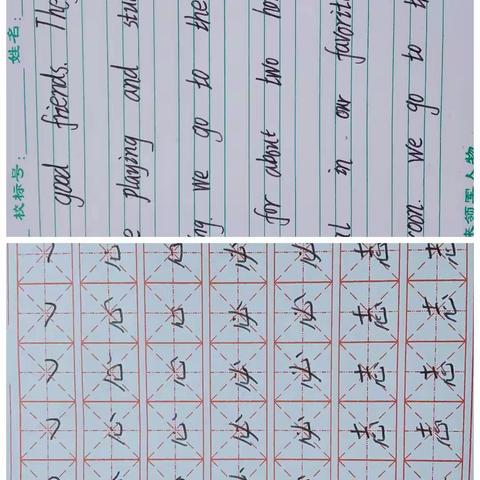 校标号: 姓名:
good friends. The
playing and stu
ng. We go to the
for about two ho
in our favorit
oon. We go to t
领军人物
心 心 心 心
心 心 心 心
必 必 必 必
必 必 必 必
志 志 志 志
志 志 志 志